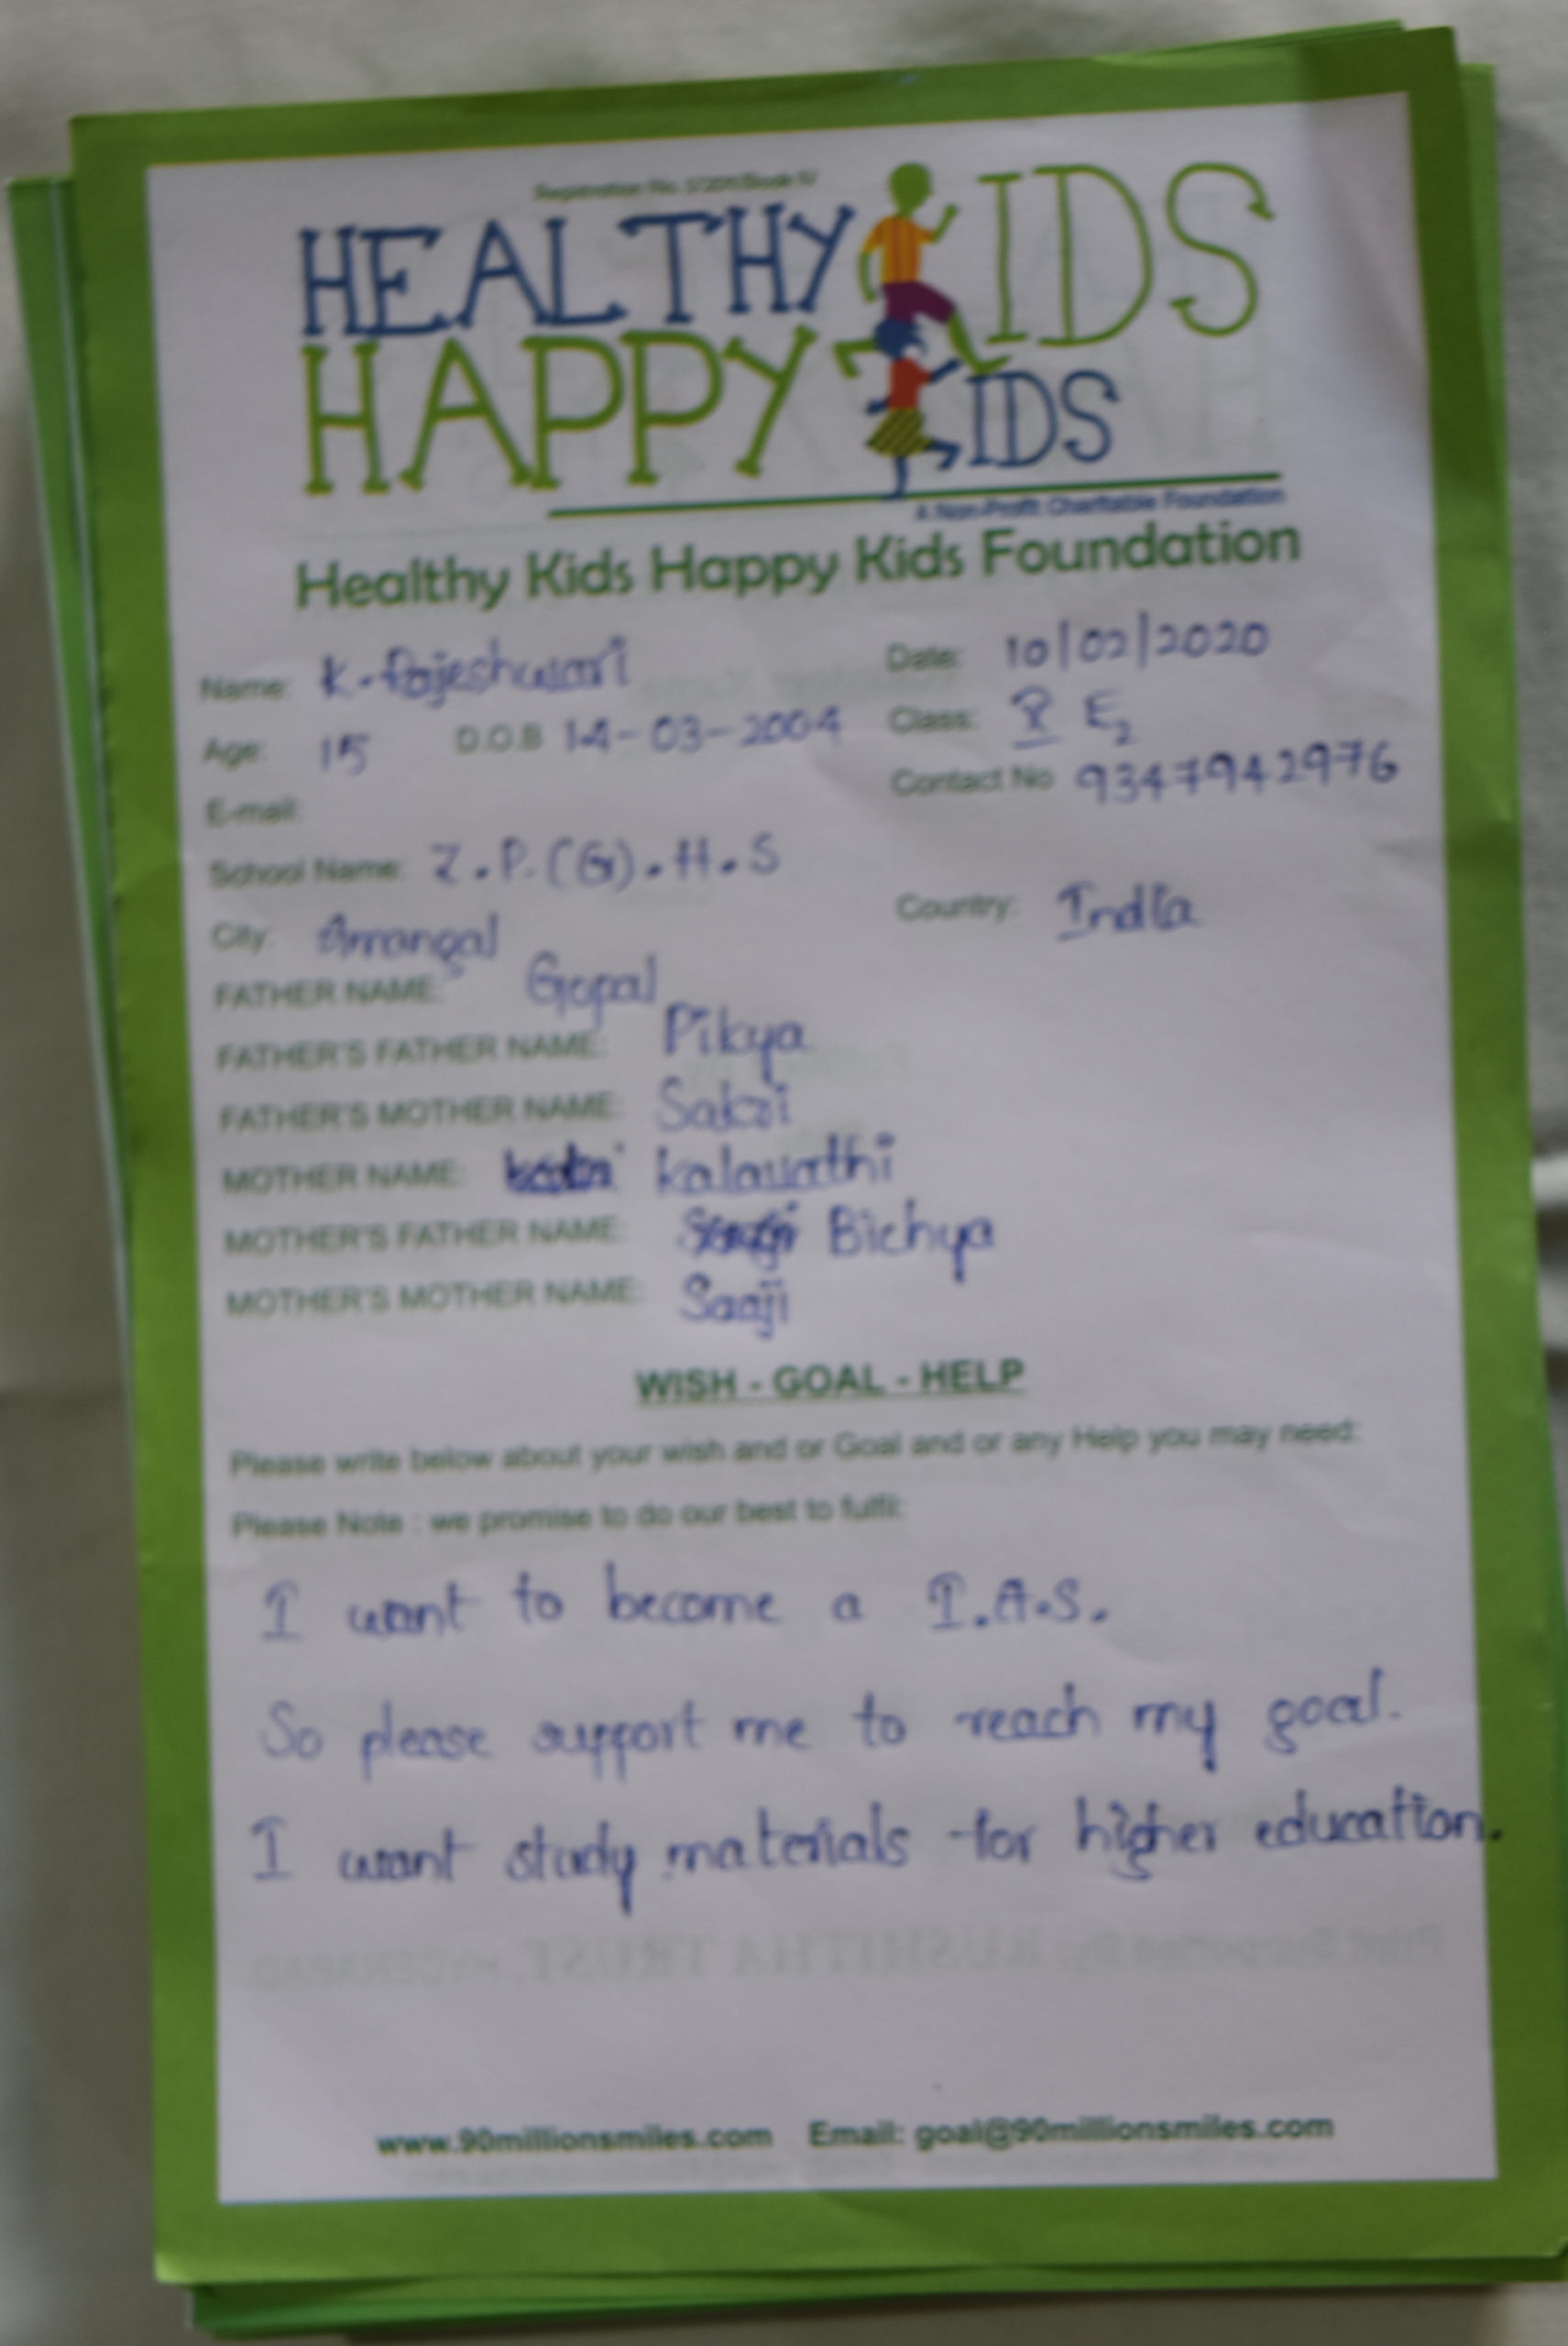 HEALTHY KIDS
HAPPY KIDS
A Non-Profit Charitable Foundation
Healthy Kids Happy Kids Foundation
Name: K. Rajeshwari Date: 10/02/2020
Age: 15 D.O.B 14-03-2004 Class: X E2
E-mail: Contact No 9347942976
School Name: Z.P.(G).H.S
City: Amangal Country: India
FATHER NAME: Gopal
FATHER'S FATHER NAME: Pikya
FATHER'S MOTHER NAME:
MOTHER NAME: kalavathi
MOTHER'S FATHER NAME: Bichya
MOTHER'S MOTHER NAME: Saaji
WISH - GOAL - HELP
Please write below about your wish and or Goal and or any Help you may need:
Please Note : we promise to do our best to fulfil:
I want to become a I.A.S.
So please support me to reach my goal.
I want study materials for higher education.
www.90millionsmiles.com Email: goal@90millionsmiles.com